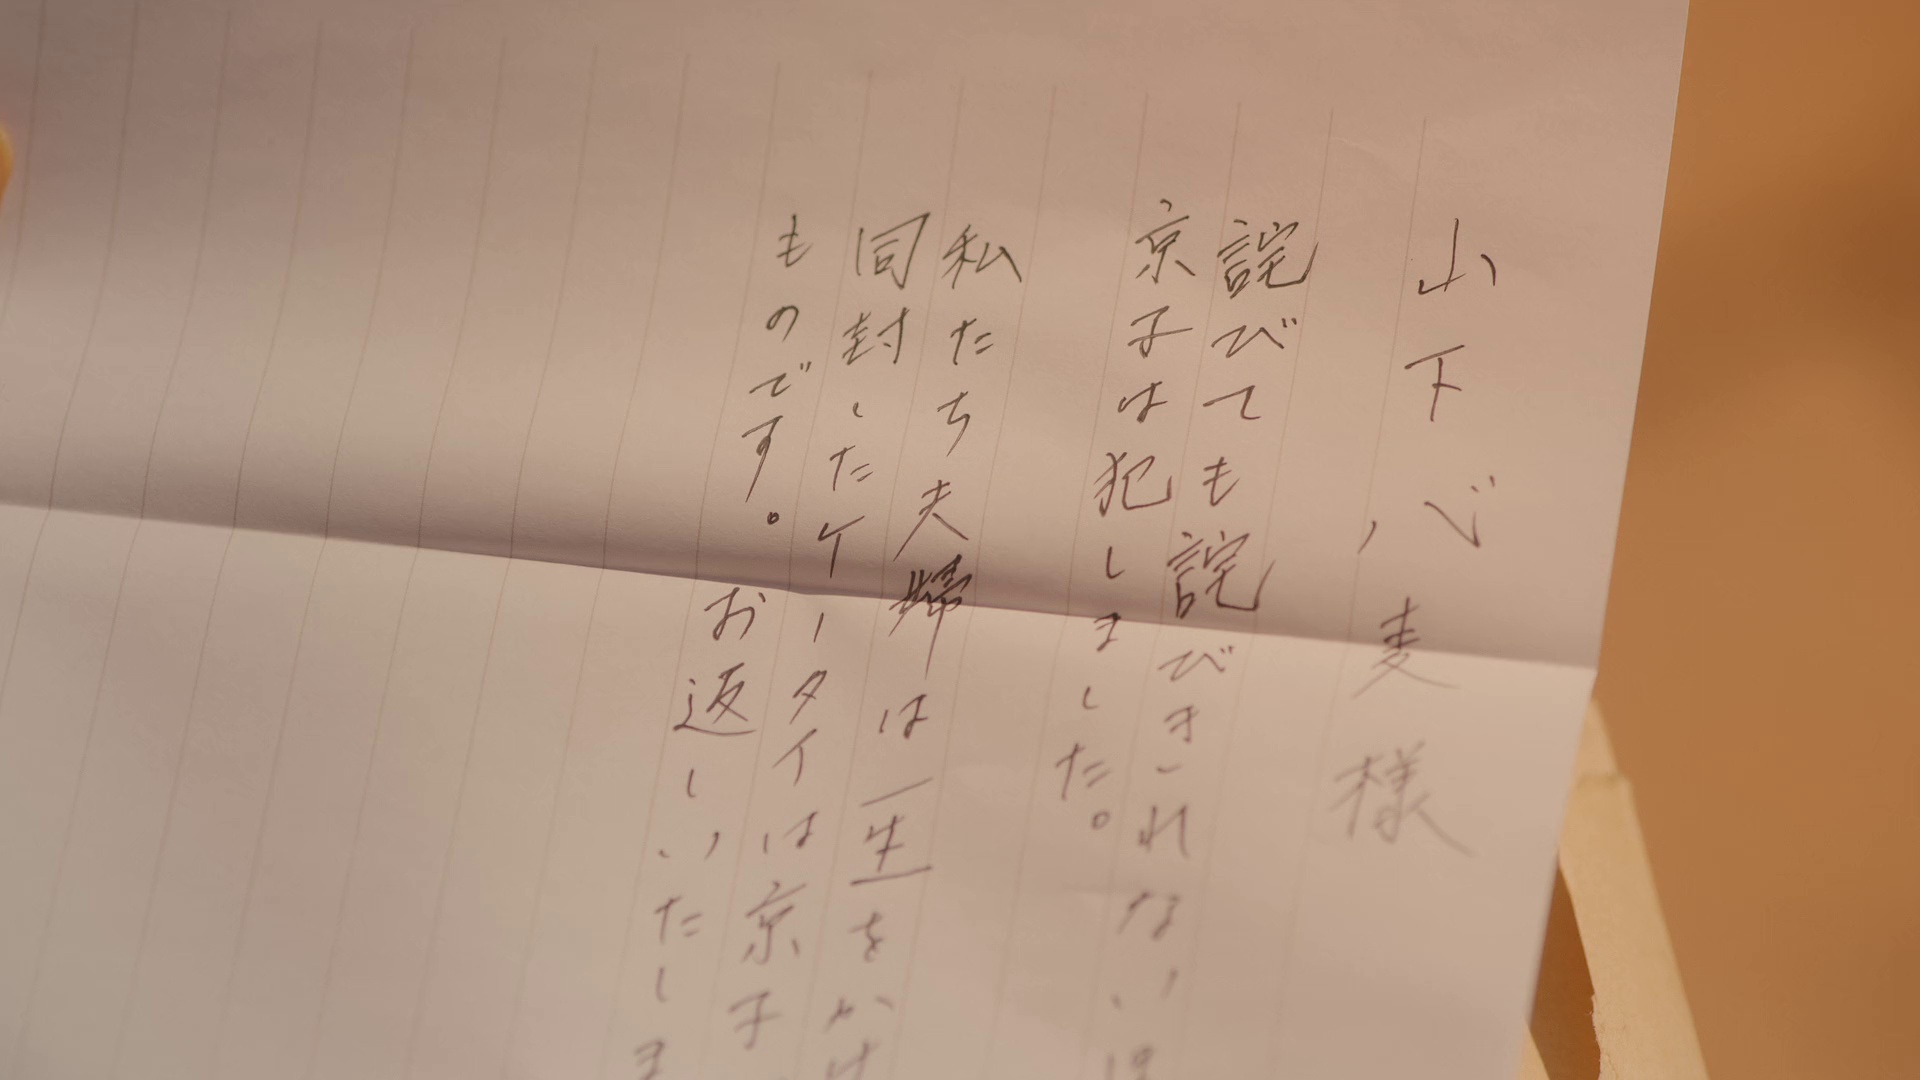 山下心麦様
詫びても詫びきれないほ
京子は犯しました。
私たち夫婦は一生をかけ
同封したケータイは京子
ものです。お返しいたしま